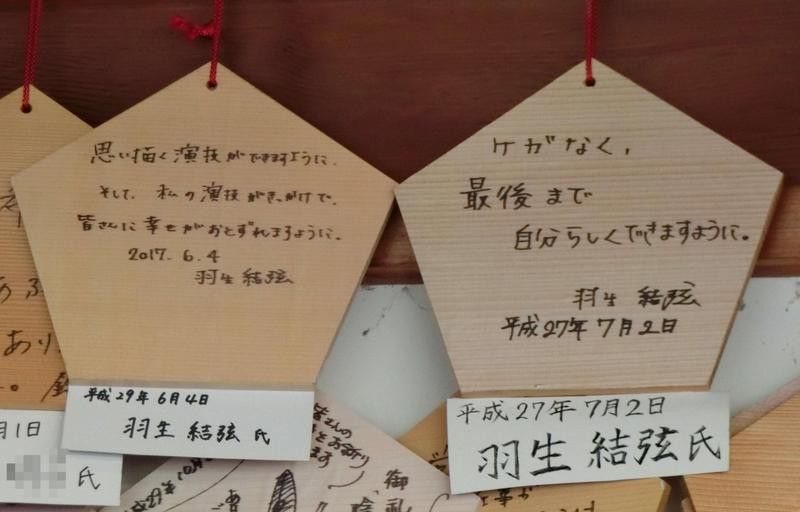 思い描く演技ができますように。
そして、私の演技がきっかけで、
皆さんに幸せがおとずれますように。
2017.6.4
羽生結弦
平成29年6月4日
羽生結弦氏
ケガなく、
最後まで
自分らしくできますように。
羽生結弦
平成27年7月2日
平成27年7月2日
羽生結弦氏
月1日
氏
御礼